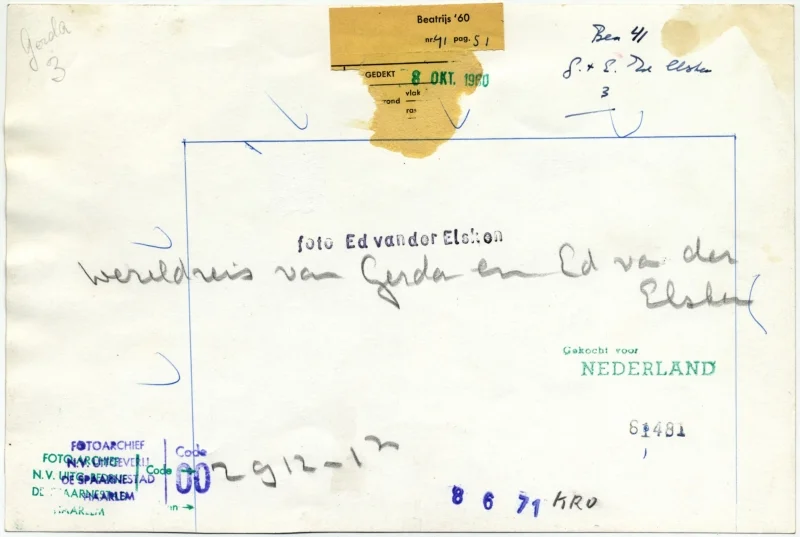 Gerda
3
Beatrijs '60
nr. 41 pag. 51
GEDEKT
8 OKT. 1960
vlak
rond
ras
Bea 41
3
foto Ed van der Elsken
Wereldreis van Gerda en Ed van der
Elsken
Gekocht voor
NEDERLAND
61481
FOTOARCHIEF
N.V. UITGEVERIJ
DE SPAARNESTAD
HAARLEM
Code
00
FOTOARCHIEF
N.V. UITG.
DE SPAARNESTAD
HAARLEM
Code
2912-12
8 6 71 KRO